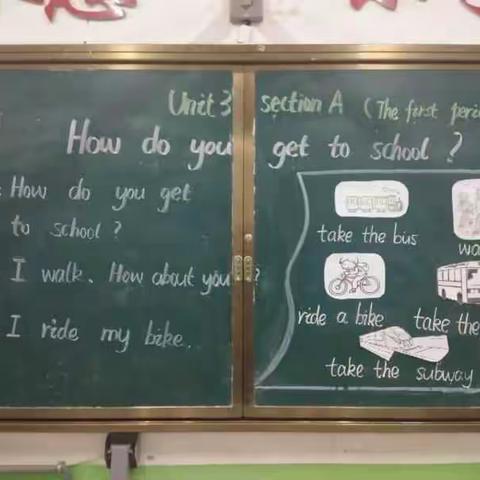 Unit 3 section A (The first
How do you get to school?
How do you get
to school?
I walk. How about you?
I ride my bike.
take the bus
ride a bike
take the
take the subway